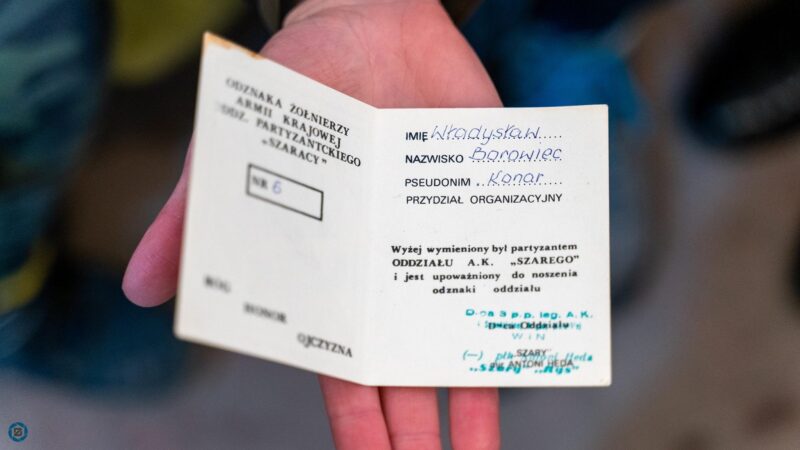 ODZNAKA ŻOŁNIERZY
ARMII KRAJOWEJ
ODDZ. PARTYZANTCKIEGO
„SZARACY”
NR 6
BÓG
HONOR
OJCZYZNA
IMIĘ Władysław
NAZWISKO Borowiec
PSEUDONIM Konar
PRZYDZIAŁ ORGANIZACYJNY
Wyżej wymieniony był partyzantem
ODDZIAŁU A.K. „SZAREGO”
i jest upoważniony do noszenia
odznaki oddziału
D-ca 3 p.p. leg. A. K.
D-ca Oddziału
W i N
„SZARY”
(—) płk Antoni Heda
ANTONI HEDA
„Szary”